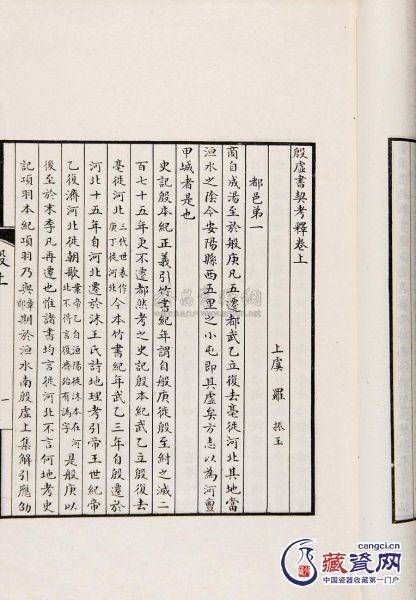 殷虛書契考釋卷上
上虞 羅 振玉
都邑第一
商自成湯至於般庚凡五遷都武乙立復去亳徙河北其地當
洹水之陰今安陽縣西五里之小屯即其虛矣方志以為河亶
甲城者是也
史記殷本紀正義引竹書紀年謂自般庚徙殷至紂之滅二
百七十五年更不遷都然考之史記殷本紀武乙立殷復去
亳徙河北三代世表作庚丁徙河北今本竹書紀年武乙三年自殷遷於
河北十五年自河北遷於沬王氏詩地理考引帝王世紀帝
乙復濟河北徙朝歌是般庚以
後至於末季凡再遷也惟諸書均言徙河北不言何地考史
記項羽本紀項羽乃與章邯期於洹水南殷虛上集解引應劭
殷上
一
cangci.cn
藏瓷网
中国瓷器收藏第一门户